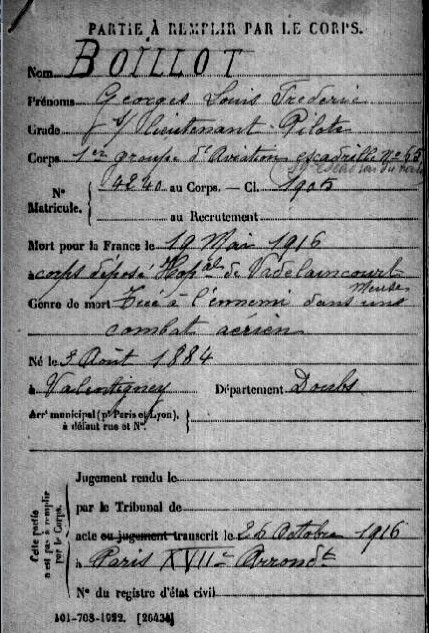 PARTIE À REMPLIR PAR LE CORPS.
Nom BOILLOT
Prénoms Georges Louis Frederic
Grade s/ lieutenant Pilote
Corps 1er groupe d'Aviation escadrille No 65
No Matricule. 4240 au Corps. — Cl. 1905
au Recrutement
Mort pour la France le 19 Mai 1916
à corps déposé Hopal de Vadelaincourt
Meuse
Genre de mort Tué à l'ennemi dans un
combat aérien
Né le 3 Août 1884
à Valentigney Département Doubs
Arrt municipal (pr Paris et Lyon),
à défaut rue et No.
Cette partie n'est pas à remplir par le Corps.
Jugement rendu le
par le Tribunal de
acte ou jugement transcrit le 26 Octobre 1916
à Paris XVIIe Arrondt
No du registre d'état civil
101-708-1922. [26434]